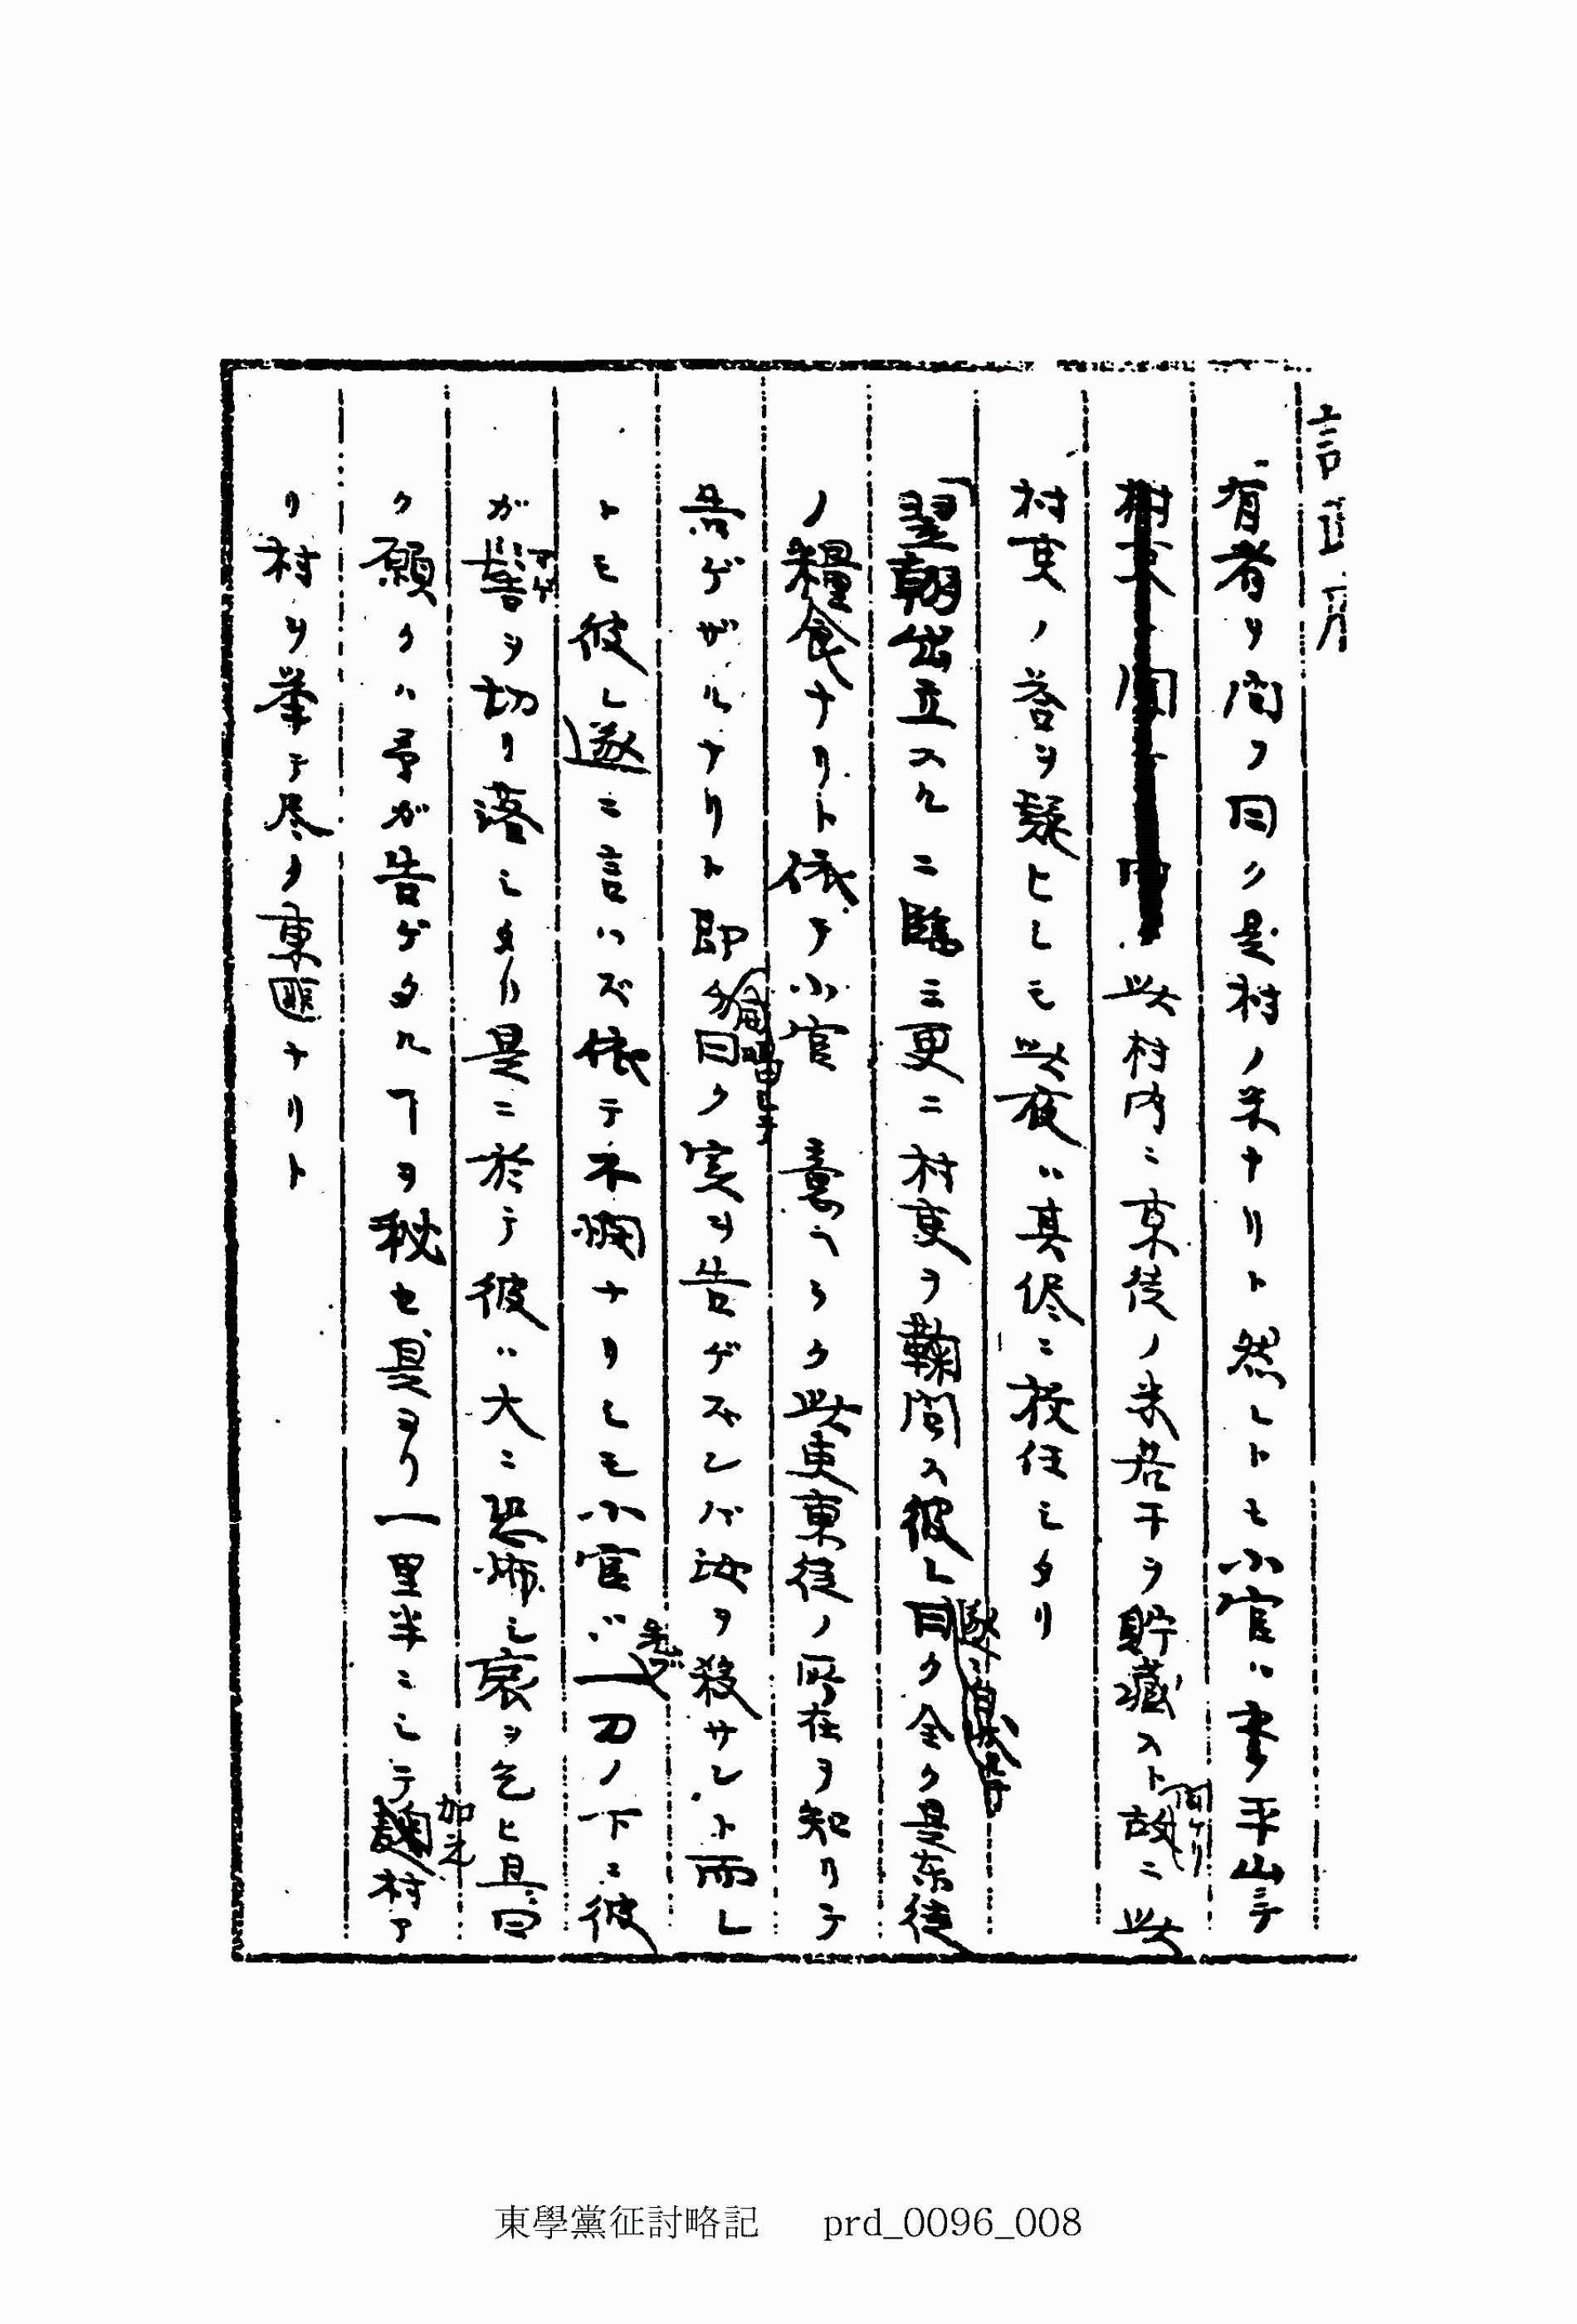 有者ヲ問フ曰ク是村ノ米ナリト然レトモ小官ハ妻平山ニテ
此村内ニ東徒ノ米若干ヲ貯藏スト聞ケリ故ニ此
村吏ノ答ヲ疑ヒシモ此夜ハ其侭ニ放任シタリ
翌朝出立スルニ臨ミ更ニ村吏ヲ鞠問ス彼レ曰ク全ク是东徒
ノ糧食ナリト依テ小官意ヘラク此吏東徒ノ所在ヲ知リテ
告ゲザルナリト即チ曰ク実ヲ告ゲズンバ汝ヲ殺サント而レ
トモ彼レ遂ニ言ハズ依テ不憫ナリシモ小官ハ一刀ノ下ニ彼
ガ髻ヲ切リ落シタリ是ニ於テ彼ハ大ニ恐怖シ哀ヲ乞ヒ且曰
ク願クハ予ガ告ゲタルヿヲ秘セ是ヨリ一里半ニシテ村ア
リ村ヲ挙テ尽ク東匪ナリト
東學黨征討略記 prd_0096_008